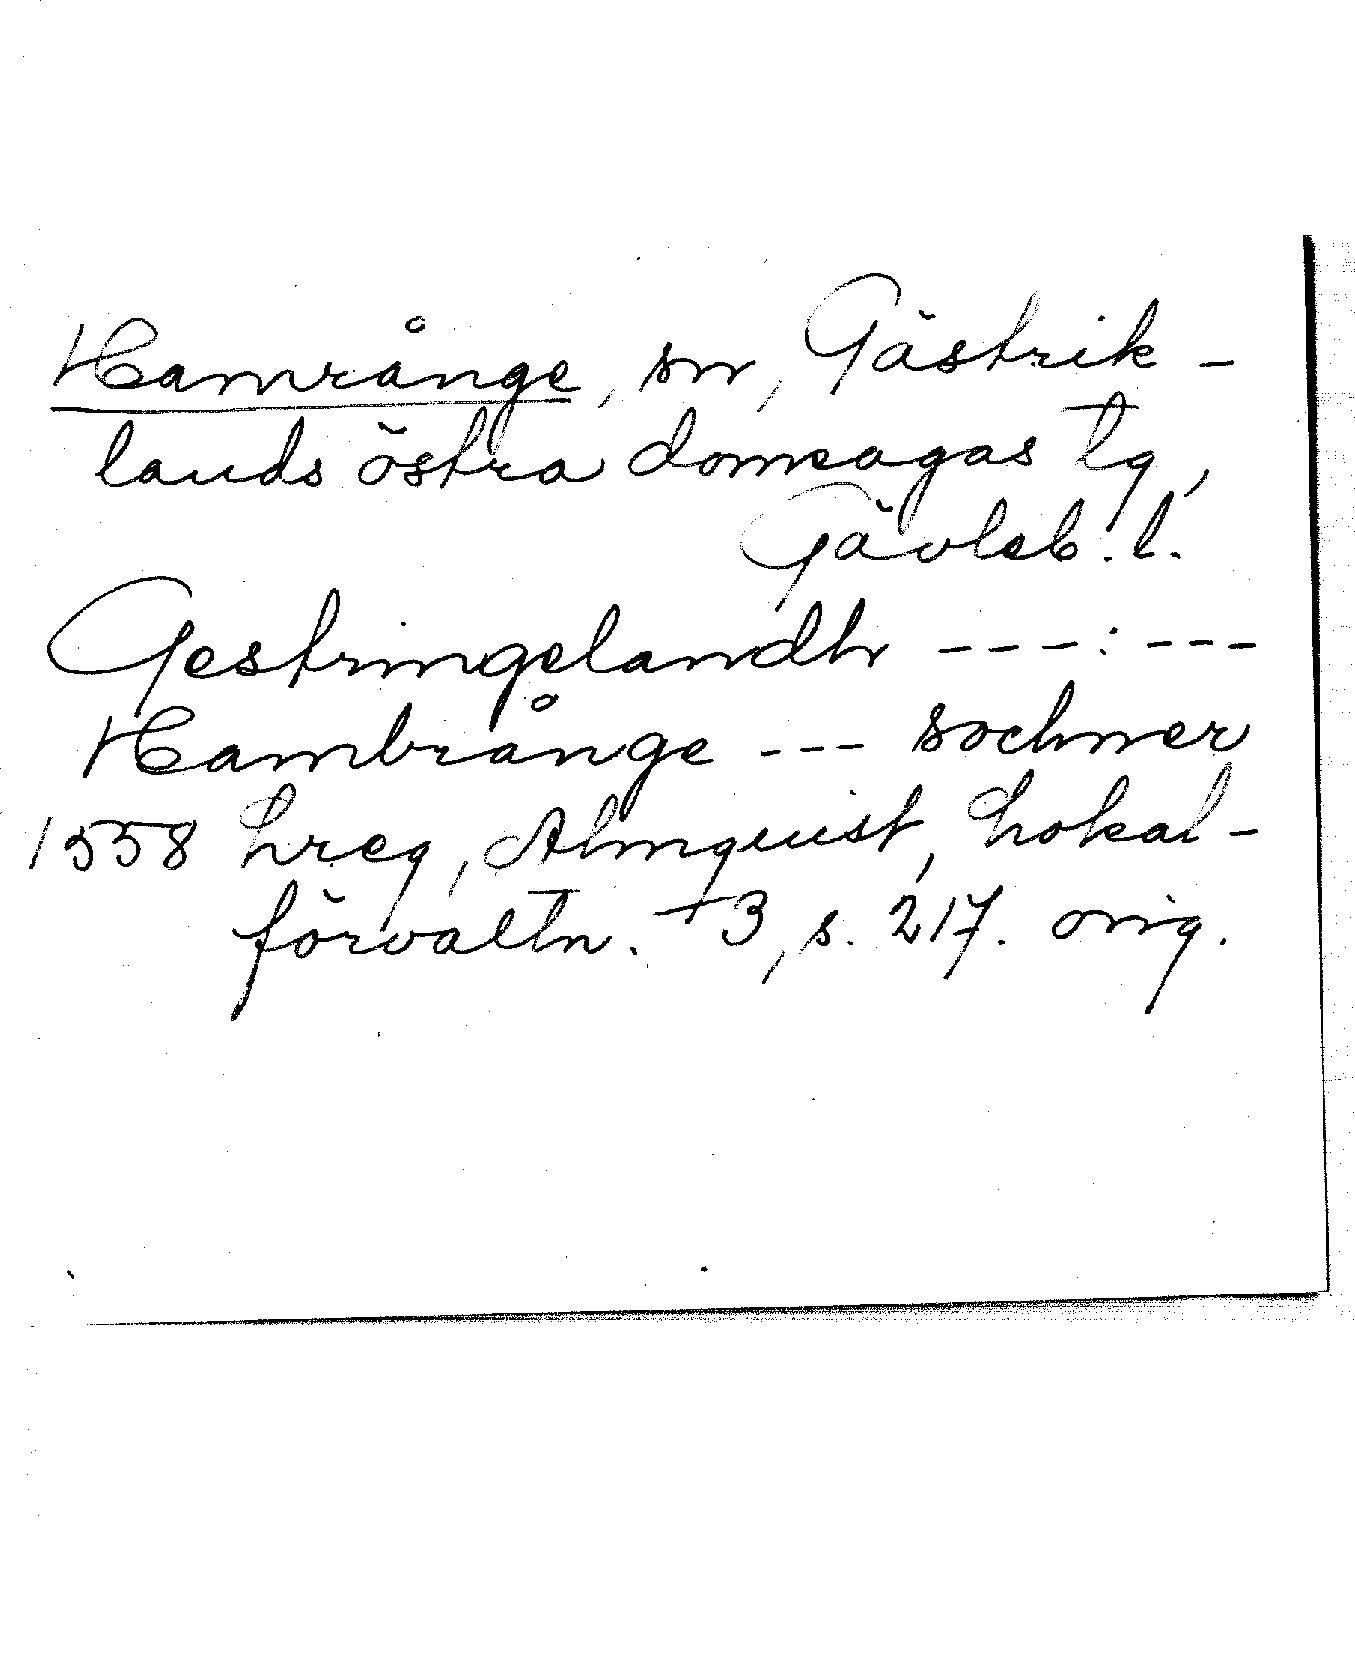 Hamrånge, sn, Gästrik-
lands östra domsagas tg,
Gävleb. l.
Gestringelandh ---:---
Hambrånge --- sochner
1558 Lreg, Almquist, Lokal-
förvaltn. +3, s. 217. orig.